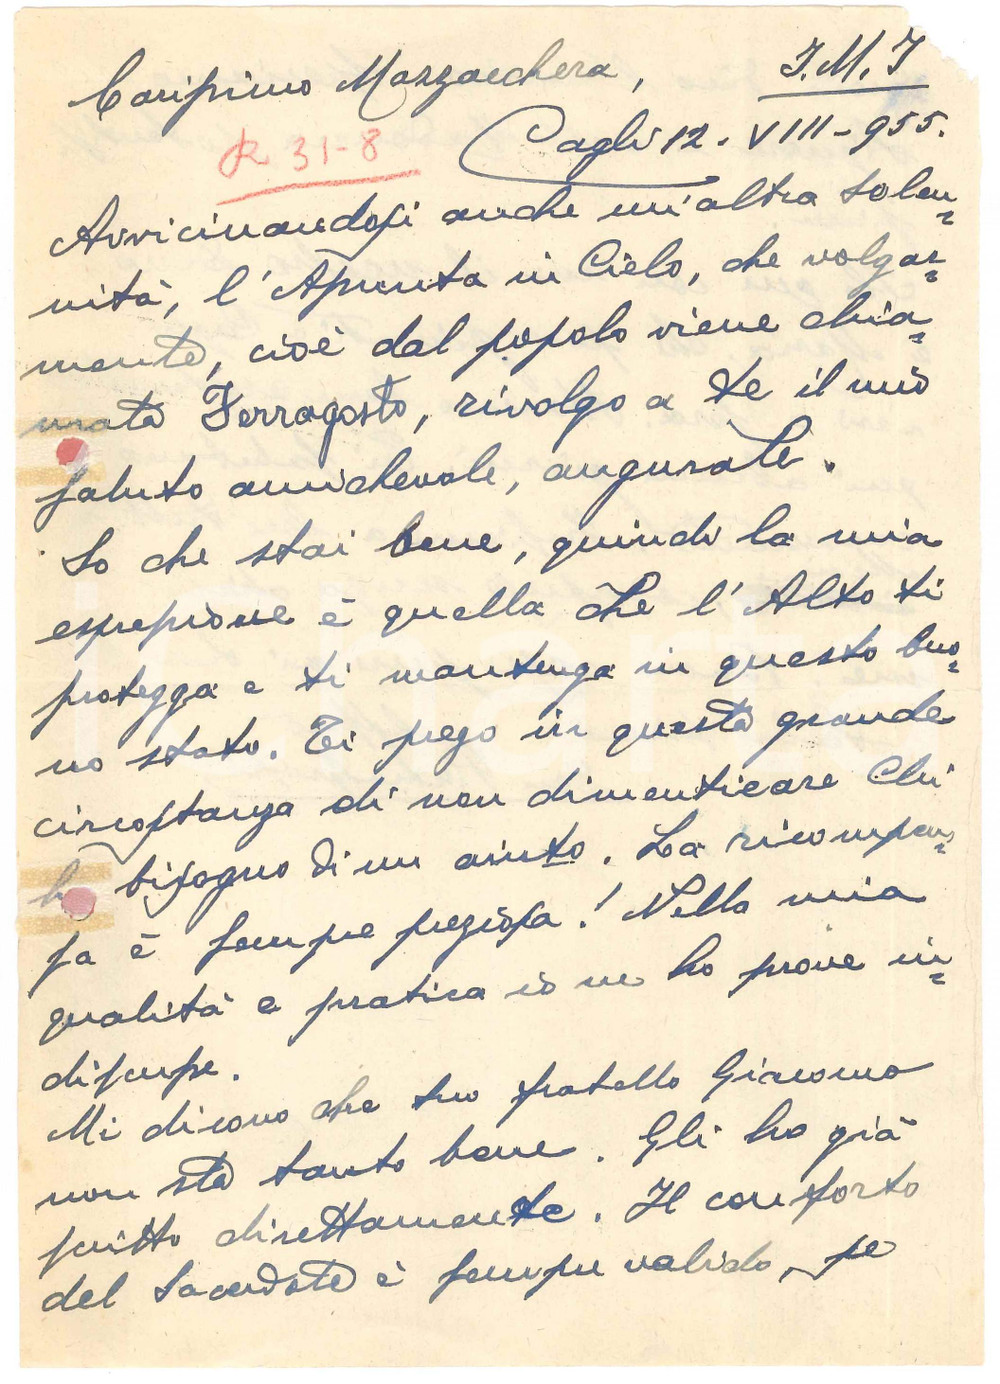 Carissimo Mazzacchera,
J.M.J
Cagli 12. VIII-955.
R 31-8
Avvicinandosi anche un'altra solen=
nità, l'Assunta in Cielo, che volgar=
mente, cioè dal popolo viene chia=
mata Ferragosto, rivolgo a te il mio
saluto amichevole, augurale.
So che stai bene, quindi la mia
espressione è quella che l'Alto ti
protegga e ti mantenga in questo buo=
no stato. Ti prego in questa grande
circostanza di non dimenticare Chi
ha bisogno di un aiuto. La ricompen=
sa è sempre preziosa! Nella mia
qualità e pratica io ne ho prove in=
discusse.
Mi dicono che tuo fratello Giacomo
non sta tanto bene. Gli ho già
scritto direttamente. Il conforto
del Sacerdote è sempre valido, se